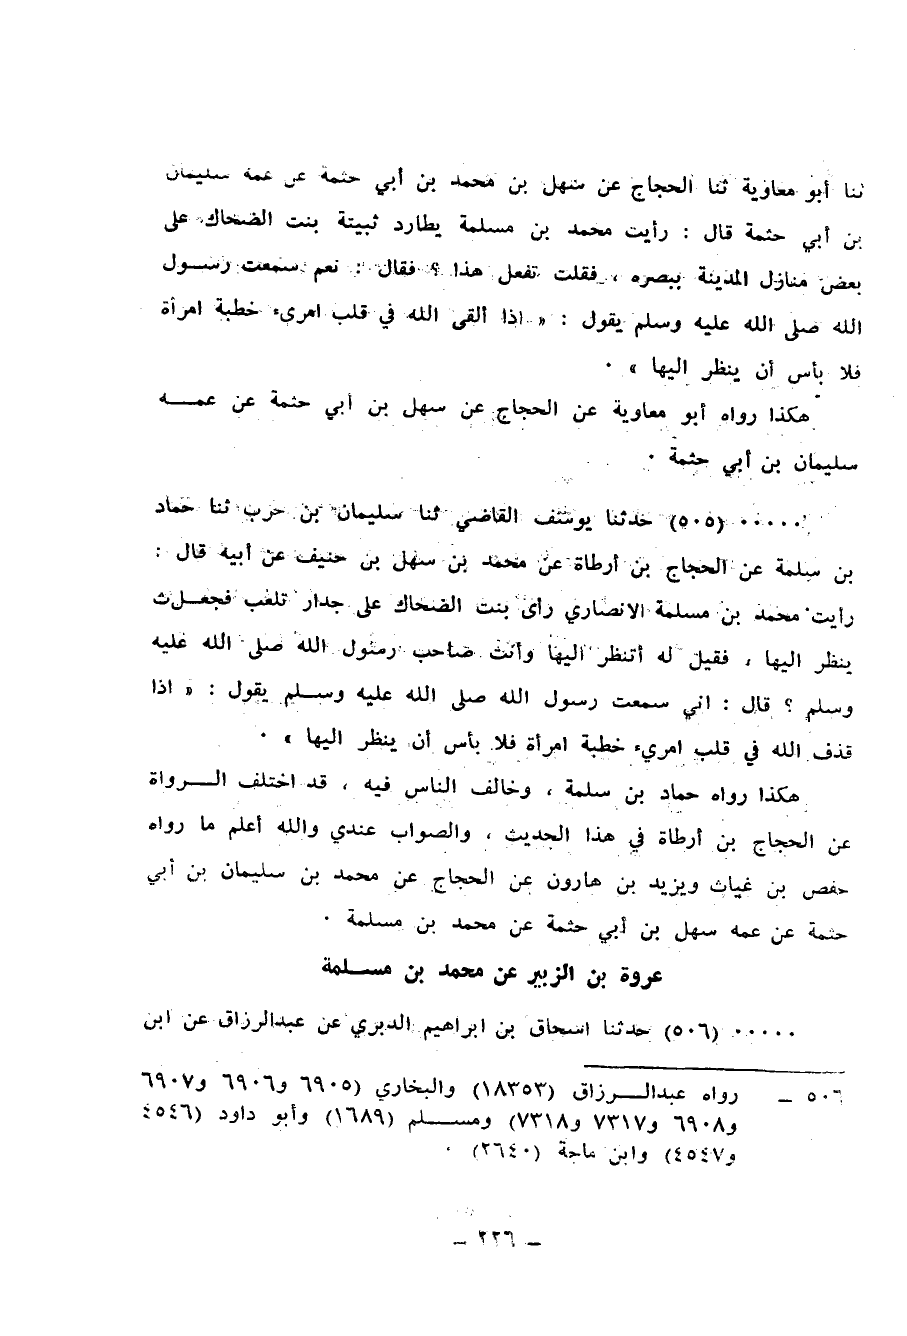 ثنا أبو معاوية ثنا الحجاج عن سهل بن محمد بن أبي حثمة عن عمه سليمان
بن أبي حثمة قال : رأيت محمد بن مسلمة يطارد ثبيتة بنت الضحاك على
بعض منازل المدينة ببصره ، فقلت تفعل هذا ؟ فقال : نعم سمعت رسول
الله صلى الله عليه وسلم يقول : « اذا ألقى الله في قلب امرىء خطبة امرأة
فلا بأس أن ينظر اليها » ٠
هكذا رواه أبو معاوية عن الحجاج عن سهل بن أبي حثمة عن عمه
سليمان بن أبي حثمة ٠
٠٠٠٠٠ (٥٠٥) حدثنا يوسف القاضي ثنا سليمان بن حرب ثنا حماد
بن سلمة عن الحجاج بن أرطاة عن محمد بن سهل بن حنيف عن أبيه قال :
رأيت محمد بن مسلمة الانصاري رأى بنت الضحاك على جدار تلعب فجعلث
ينظر اليها ، فقيل له أتنظر اليها وأنت صاحب رسول الله صلى الله عليه
وسلم ؟ قال : اني سمعت رسول الله صلى الله عليه وسلم يقول : « اذا
قذف الله في قلب امريء خطبة امرأة فلا بأس أن ينظر اليها » ٠
هكذا رواه حماد بن سلمة ، وخالف الناس فيه ، قد اختلف الرواة
عن الحجاج بن أرطاة في هذا الحديث ، والصواب عندي والله أعلم ما رواه
حفص بن غياث ويزيد بن هارون عن الحجاج عن محمد بن سليمان بن أبي
حثمة عن عمه سهل بن أبي حثمة عن محمد بن مسلمة ٠
عروة بن الزبير عن محمد بن مسلمة
٠٠٠٠٠ (٥٠٦) حدثنا اسحاق بن ابراهيم الدبري عن عبدالرزاق عن ابن
٥٠٦ ـ رواه عبدالرزاق (١٨٣٥٣) والبخاري (٦٩٠٥ و٦٩٠٦ و٦٩٠٧
و٦٩٠٨ و٧٣١٧ و٧٣١٨) ومسلم (١٦٨٩) وأبو داود (٤٥٤٦
و٤٥٤٧) وابن ماجة (٢٦٤٠) ٠
ـ ٢٢٦ ـ